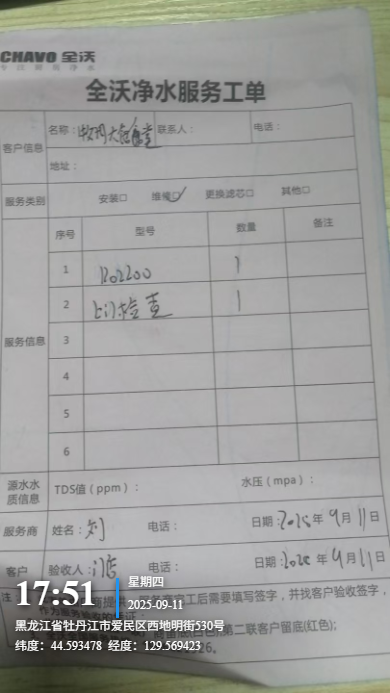 CHAVO 全沃
专注商用净水
全沃净水服务工单
客户信息 名称：牡丹大食堂 联系人： 电话：
地址：
服务类别 安装□ 维修☑ 更换滤芯□ 其他□
服务信息 序号 型号 数量 备注
1 1
2 上门检查 1
3
4
5
6
源水水质信息 TDS值（ppm）： 水压（mpa）：
服务商 姓名：刘 电话： 日期：2025年9月11日
客户 验收人：门店 电话： 日期：2025年9月11日
工后需要填写签字，并找客户验收签字，
第二联客户留底(红色);
17:51
星期四
2025-09-11
黑龙江省牡丹江市爱民区西地明街530号
纬度：44.593478 经度：129.569423